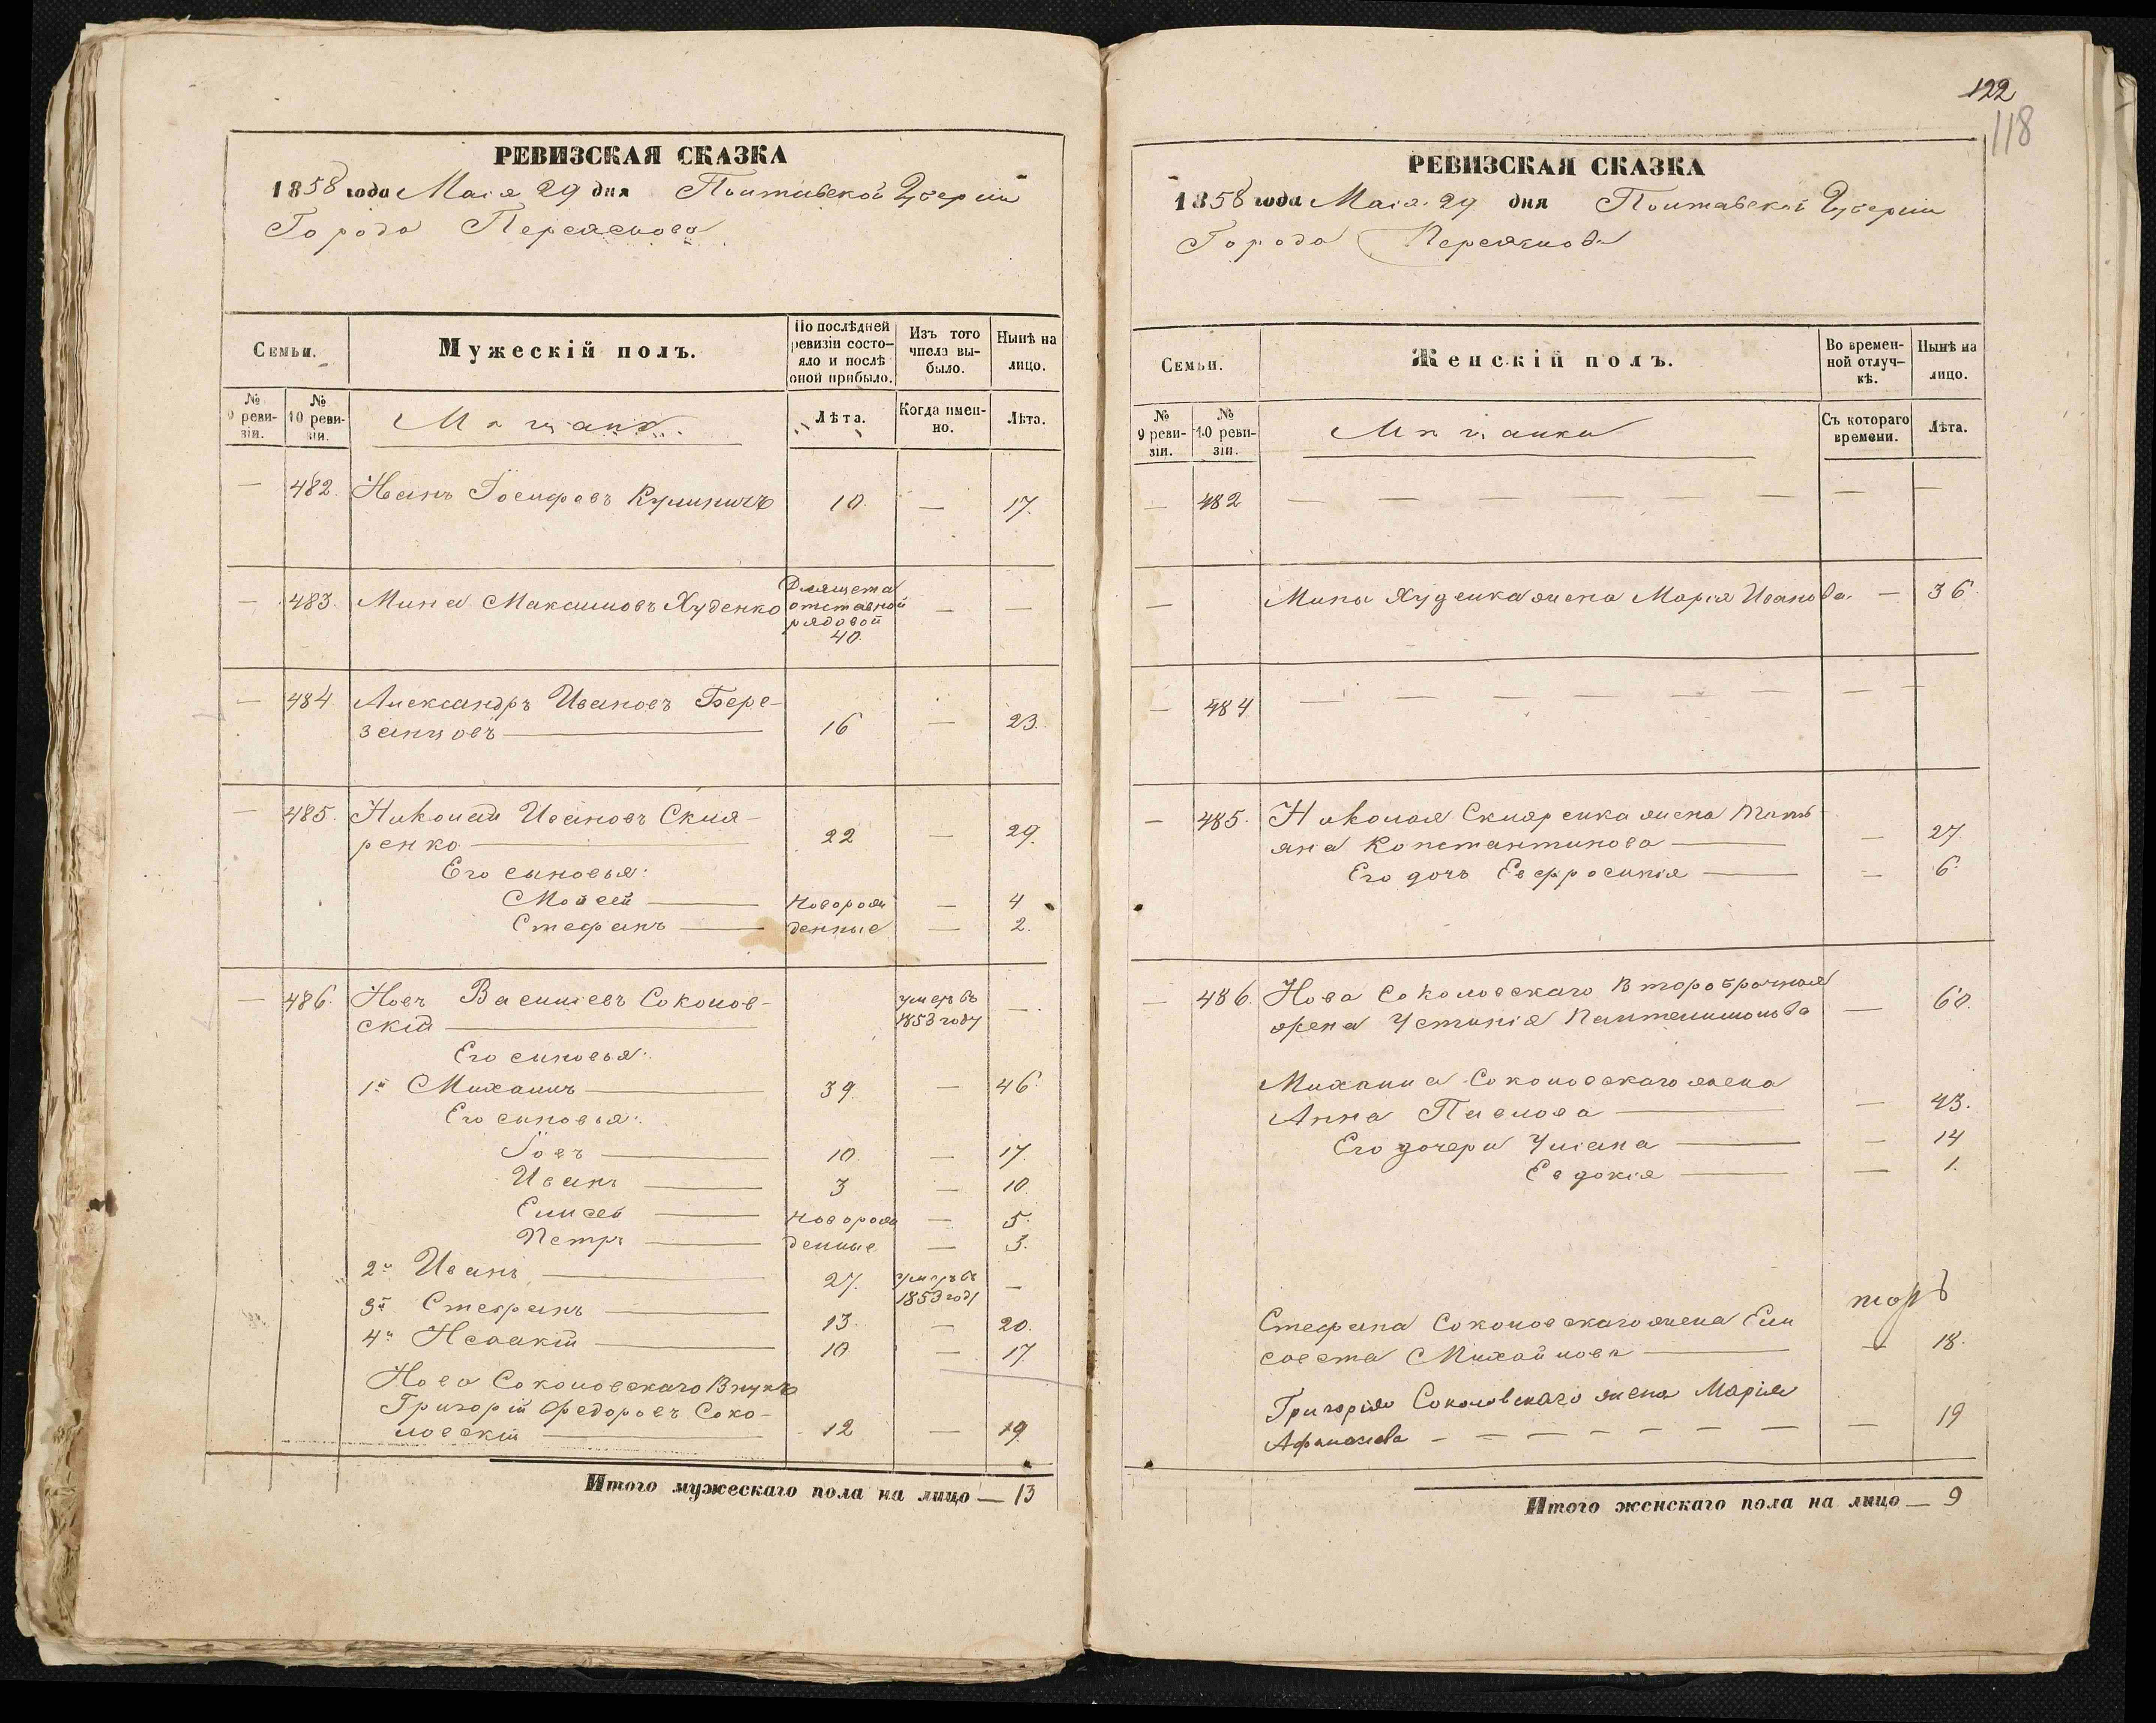 РЕВИЗСКАЯ СКАЗКА
1858 года Маія 29 дня Полтавской Губерніи
Города Переяслова
Семьи.
Мужескій полъ.
По послѣдней ревизіи состояло и послѣ оной прибыло.
Изъ того числа выбыло.
Нынѣ на лицо.
№ 9 ревизіи.
№ 10 ревизіи.
Мѣщанѣ.
Лѣта.
Когда именно.
Лѣта.
— 482. Иванъ Іосифовъ Кулиничъ 10. — 17.
— 483. Мина Максимовъ Худенко
отставной
рядовой
40. — —
— 484 Александръ Ивановъ Бере-
занцовъ 16 — 23.
— 485. Николай Ивановъ Скля-
ренко 22 — 29.
Его сыновья:
Мойсей новорож — 4
Стефанъ денные — 2.
— 486. Іовъ Васильевъ Соколов- умеръ въ
скій 1853 году —
Его сыновья:
1й Михаилъ 39. — 46.
Его сыновья:
Іовъ 10 — 17.
Иванъ 3 — 10.
Елисей новорож — 5.
Петръ денные — 3.
2й Иванъ 27. умеръ въ 1853 году —
3й Стефанъ 13. — 20.
4й Исаакій 10 — 17.
Іова Соколовскаго Внукъ
Григорій Федоровъ Соко-
ловскій 12 — 19.
Итого мужескаго пола на лицо — 13
122
118
РЕВИЗСКАЯ СКАЗКА
1858 года Маія 29 дня Полтавской Губерніи
Города Переяслова
Семьи.
Женскій полъ.
Во временной отлучкѣ.
Нынѣ на лицо.
№ 9 ревизіи.
№ 10 ревизіи.
Мѣщанки
Съ котораго времени.
Лѣта.
— 482 — — — — — — — —
— Мины Худенка жена Марія Иванова — 36.
— 484 — — — — — — — —
— 485. Николая Скляренка жена Тать
яна Константинова — 27.
Его дочь Евфросинія — 6.
— 486. Іова Соколовскаго второбрачная
жена Устинія Пантелимонова — 60.
Михаила Соколовскаго жена
Анна Павлова — 43.
Его дочери Уліана — 14
Евдокія — 1.
Стефана Соколовскаго жена Ели
савета Михайлова — 18.
Григорія Соколовскаго жена Марія
Афанасіева — — — — — — — — 19
Итого женскаго пола на лицо — 9